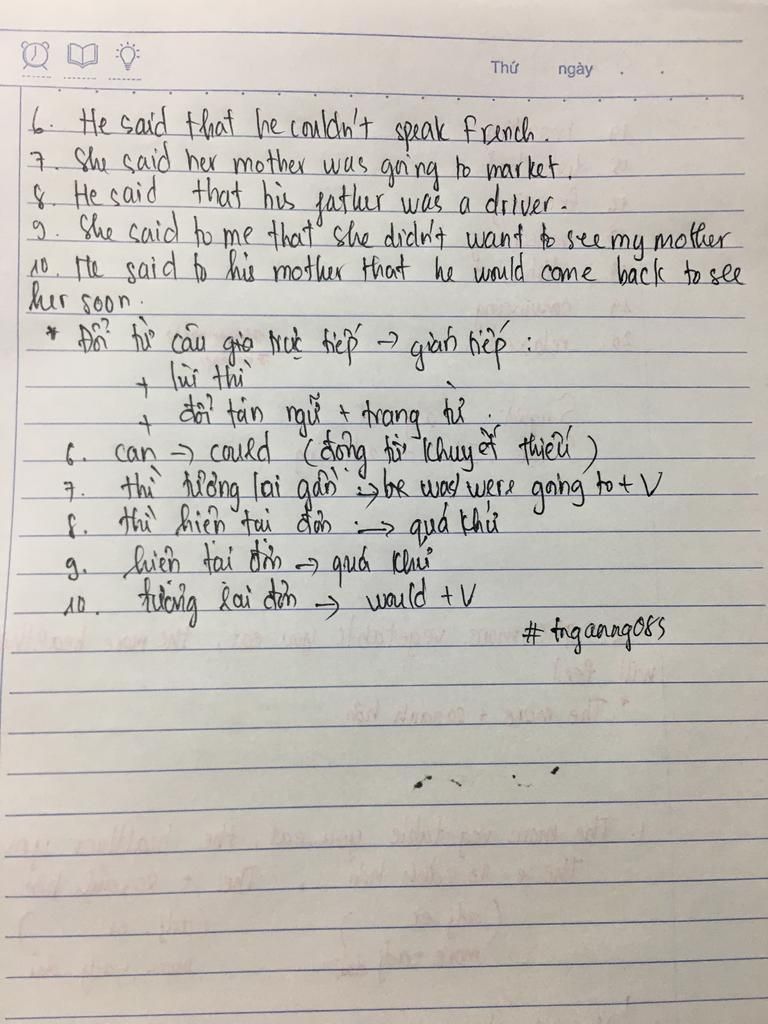 Thứ ngày . .
6. He said that he couldn't speak French.
7. She said her mother was going to market.
8. He said that his father was a driver.
9. She said to me that she didn't want to see my mother
10. He said to his mother that he would come back to see
her soon.
* Đổi từ câu gia trực tiếp → gián tiếp :
+ lùi thì
+ đổi tân ngữ + trạng từ .
6. can → could (động từ khuyết thiếu)
7. thì tương lai gần → be was/were going to + V
8. thì hiện tại đơn → quá khứ
9. hiện tại đơn → quá khứ
10. tương lai đơn → would + V